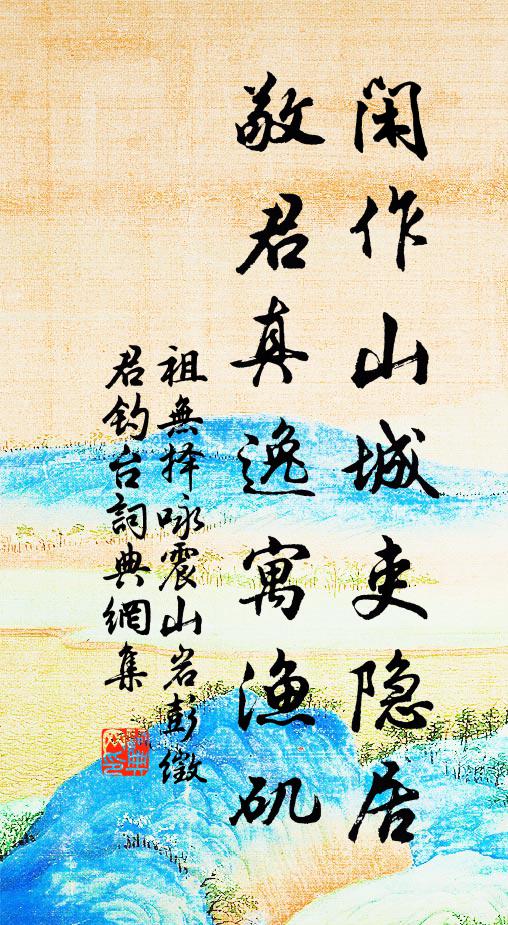 闲作山城吏隐居
敬君真逸寓渔矶
祖無择咏震山岩彭徵
君釣台詞典網集